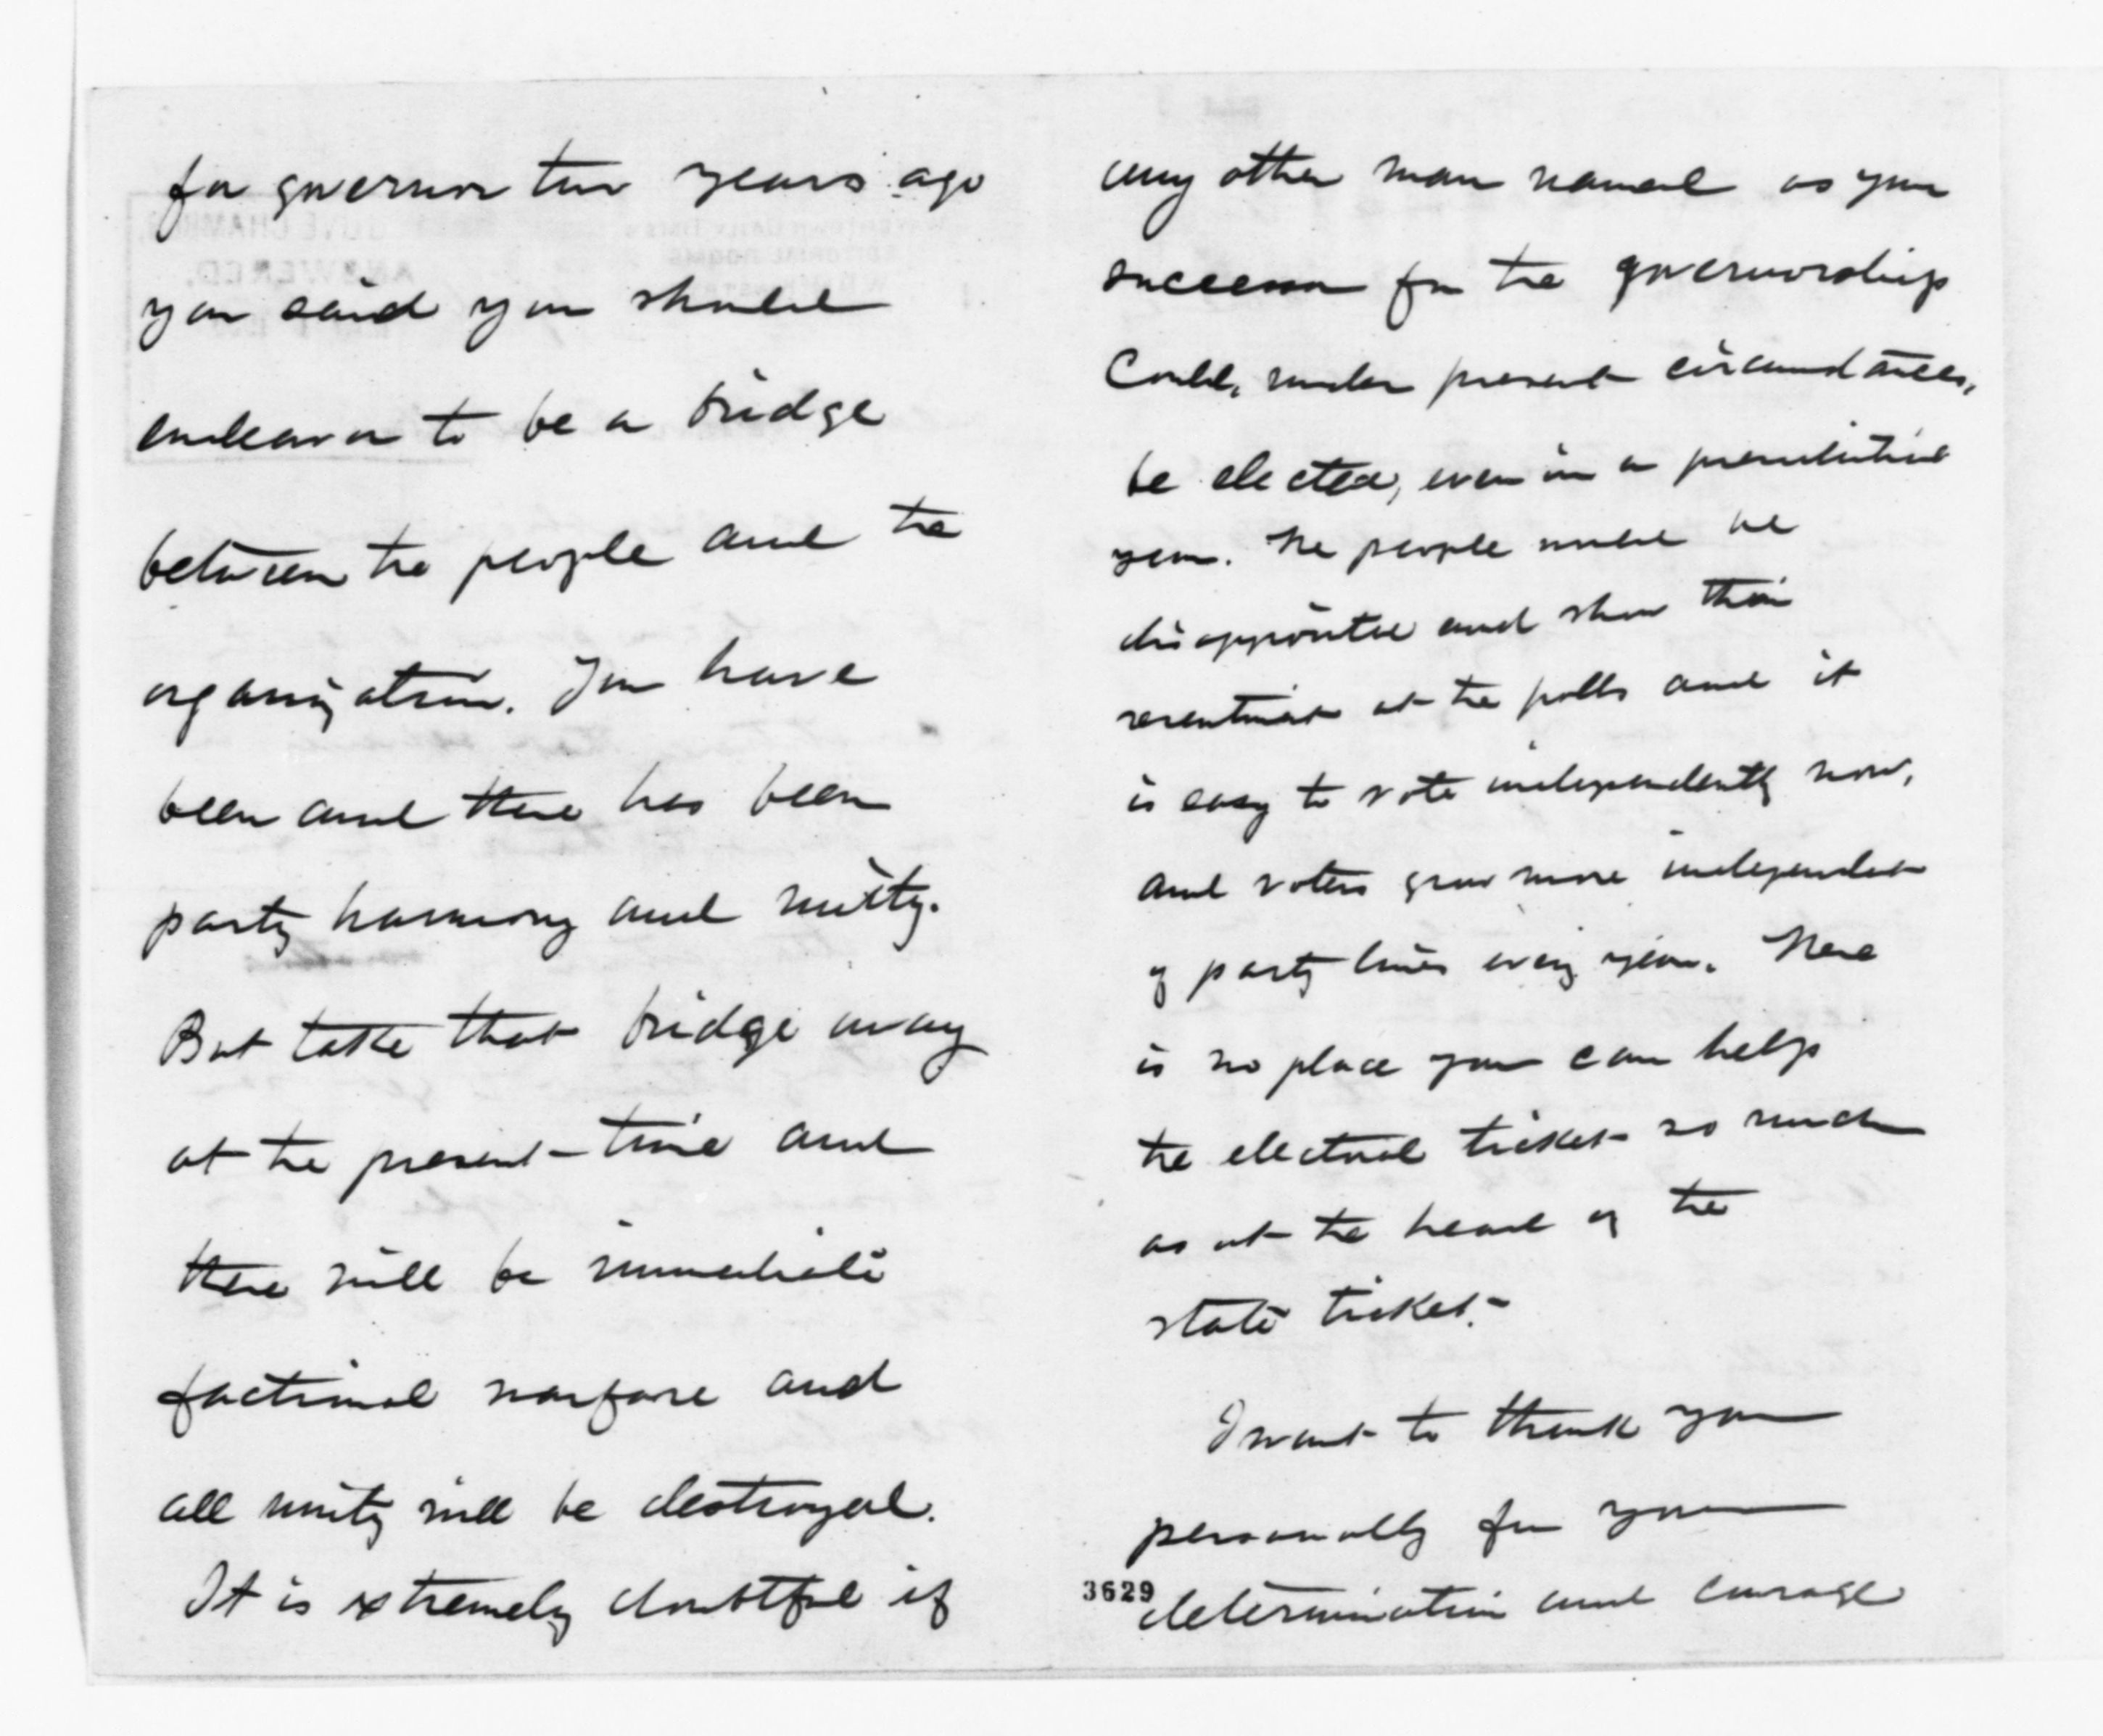 for governor two years ago
you said you should
endeavor to be a bridge
between the people and the
organization. You have
been and there has been
party harmony and unity.
But take that bridge away
at the present time and
there will be immediate
factional warfare and
all unity will be destroyed.
It is extremely doubtful if
any other man named as your
successor for the governorship
Could, under present circumstances,
be elected, even in a presidential
year. The people would be
disappointed and show their
resentment at the polls and it
is easy to vote independently now,
and voters grow more independent
of party lines every year. There
is no place you can help
the electoral ticket so much
as at the head of the
state ticket.
I want to thank you
personally for your
3629
determination and courage